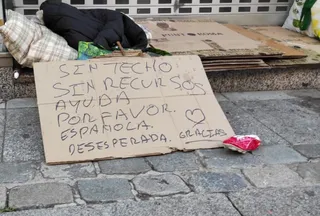 SIN TECHO
SIN RECURSOS
AYUDA
POR FAVOR.
ESPAÑOLA.
DESESPERADA. GRACIAS